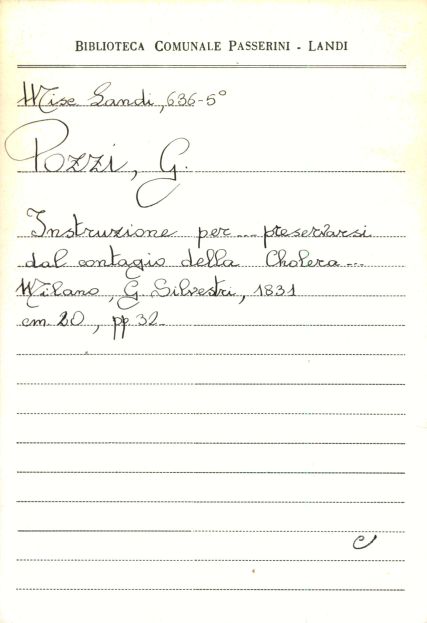 BIBLIOTECA COMUNALE PASSERINI - LANDI
Misc Landi, 636-5°
Pozzi, G.
Instruzione per... preservarsi
dal contagio della Cholera...
Milano, G. Silvestri, 1831
cm. 20, pp 32.
c